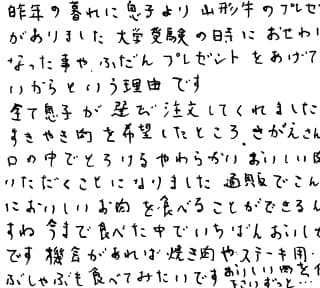 昨年の暮れに息子より山形牛のプレゼ
がありました 大学受験の時におせわ
なった事や、ふだんプレゼントをあげて
いからという理由です
全て息子が選び注文してくれました
すきやき肉を希望したところ、さがえさん
口の中でとろけるやわらかいおいしい肉
いただくことになりました 通販でこん
においしいお肉を食べることができるん
すね 今まで食べた中でいちばんおいし
です 機会があれば焼き肉やステーキ用
ぶしゃぶも食べてみたいです おいしい肉を